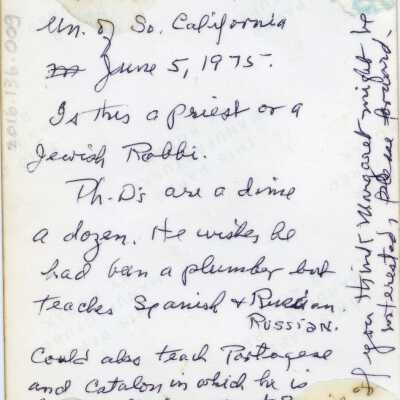 Un. of So. California
June 5, 1975.
Is this a priest or a
Jewish Rabbi.
Ph.D's are a dime
a dozen. He wishes he
had been a plumber but
teaches Spanish & Russian.
RUSSIAN.
Could also teach Portogese
and Catalon in which he is
If you think Margaret might be
interested, please forward.
2016.136.009